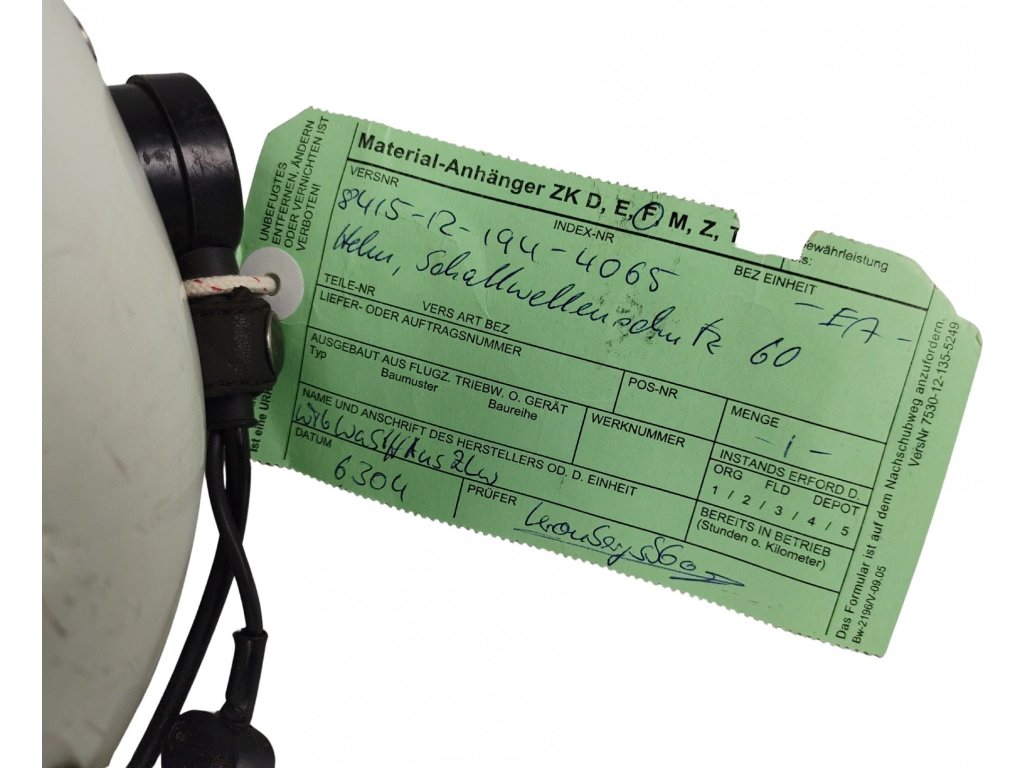 UNBEFUGTES
ENTFERNEN, ÄNDERN
ODER VERNICHTEN IST
VERBOTEN!
ist eine UR
Material-Anhänger ZK D, E, F, M, Z, T
VERSNR
8415-12-194-4065
INDEX-NR
BEZ EINHEIT
ewährleistung
is:
Helm, Schallwellenschutz 60
- EA -
TEILE-NR
VERS ART BEZ
LIEFER- ODER AUFTRAGSNUMMER
POS-NR
MENGE
- 1 -
AUSGEBAUT AUS FLUGZ. TRIEBW. O. GERÄT
Typ
Baumuster
Baureihe
WERKNUMMER
INSTANDS ERFORD D.
ORG FLD DEPOT
1 / 2 / 3 / 4 / 5
NAME UND ANSCHRIFT DES HERSTELLERS OD. D. EINHEIT
BEREITS IN BETRIEB
(Stunden o. Kilometer)
DATUM
6304
PRÜFER
Das Formular ist auf dem Nachschubweg anzufordern.
Bw-2196/V-09.05
VersNr 7530-12-135-5249